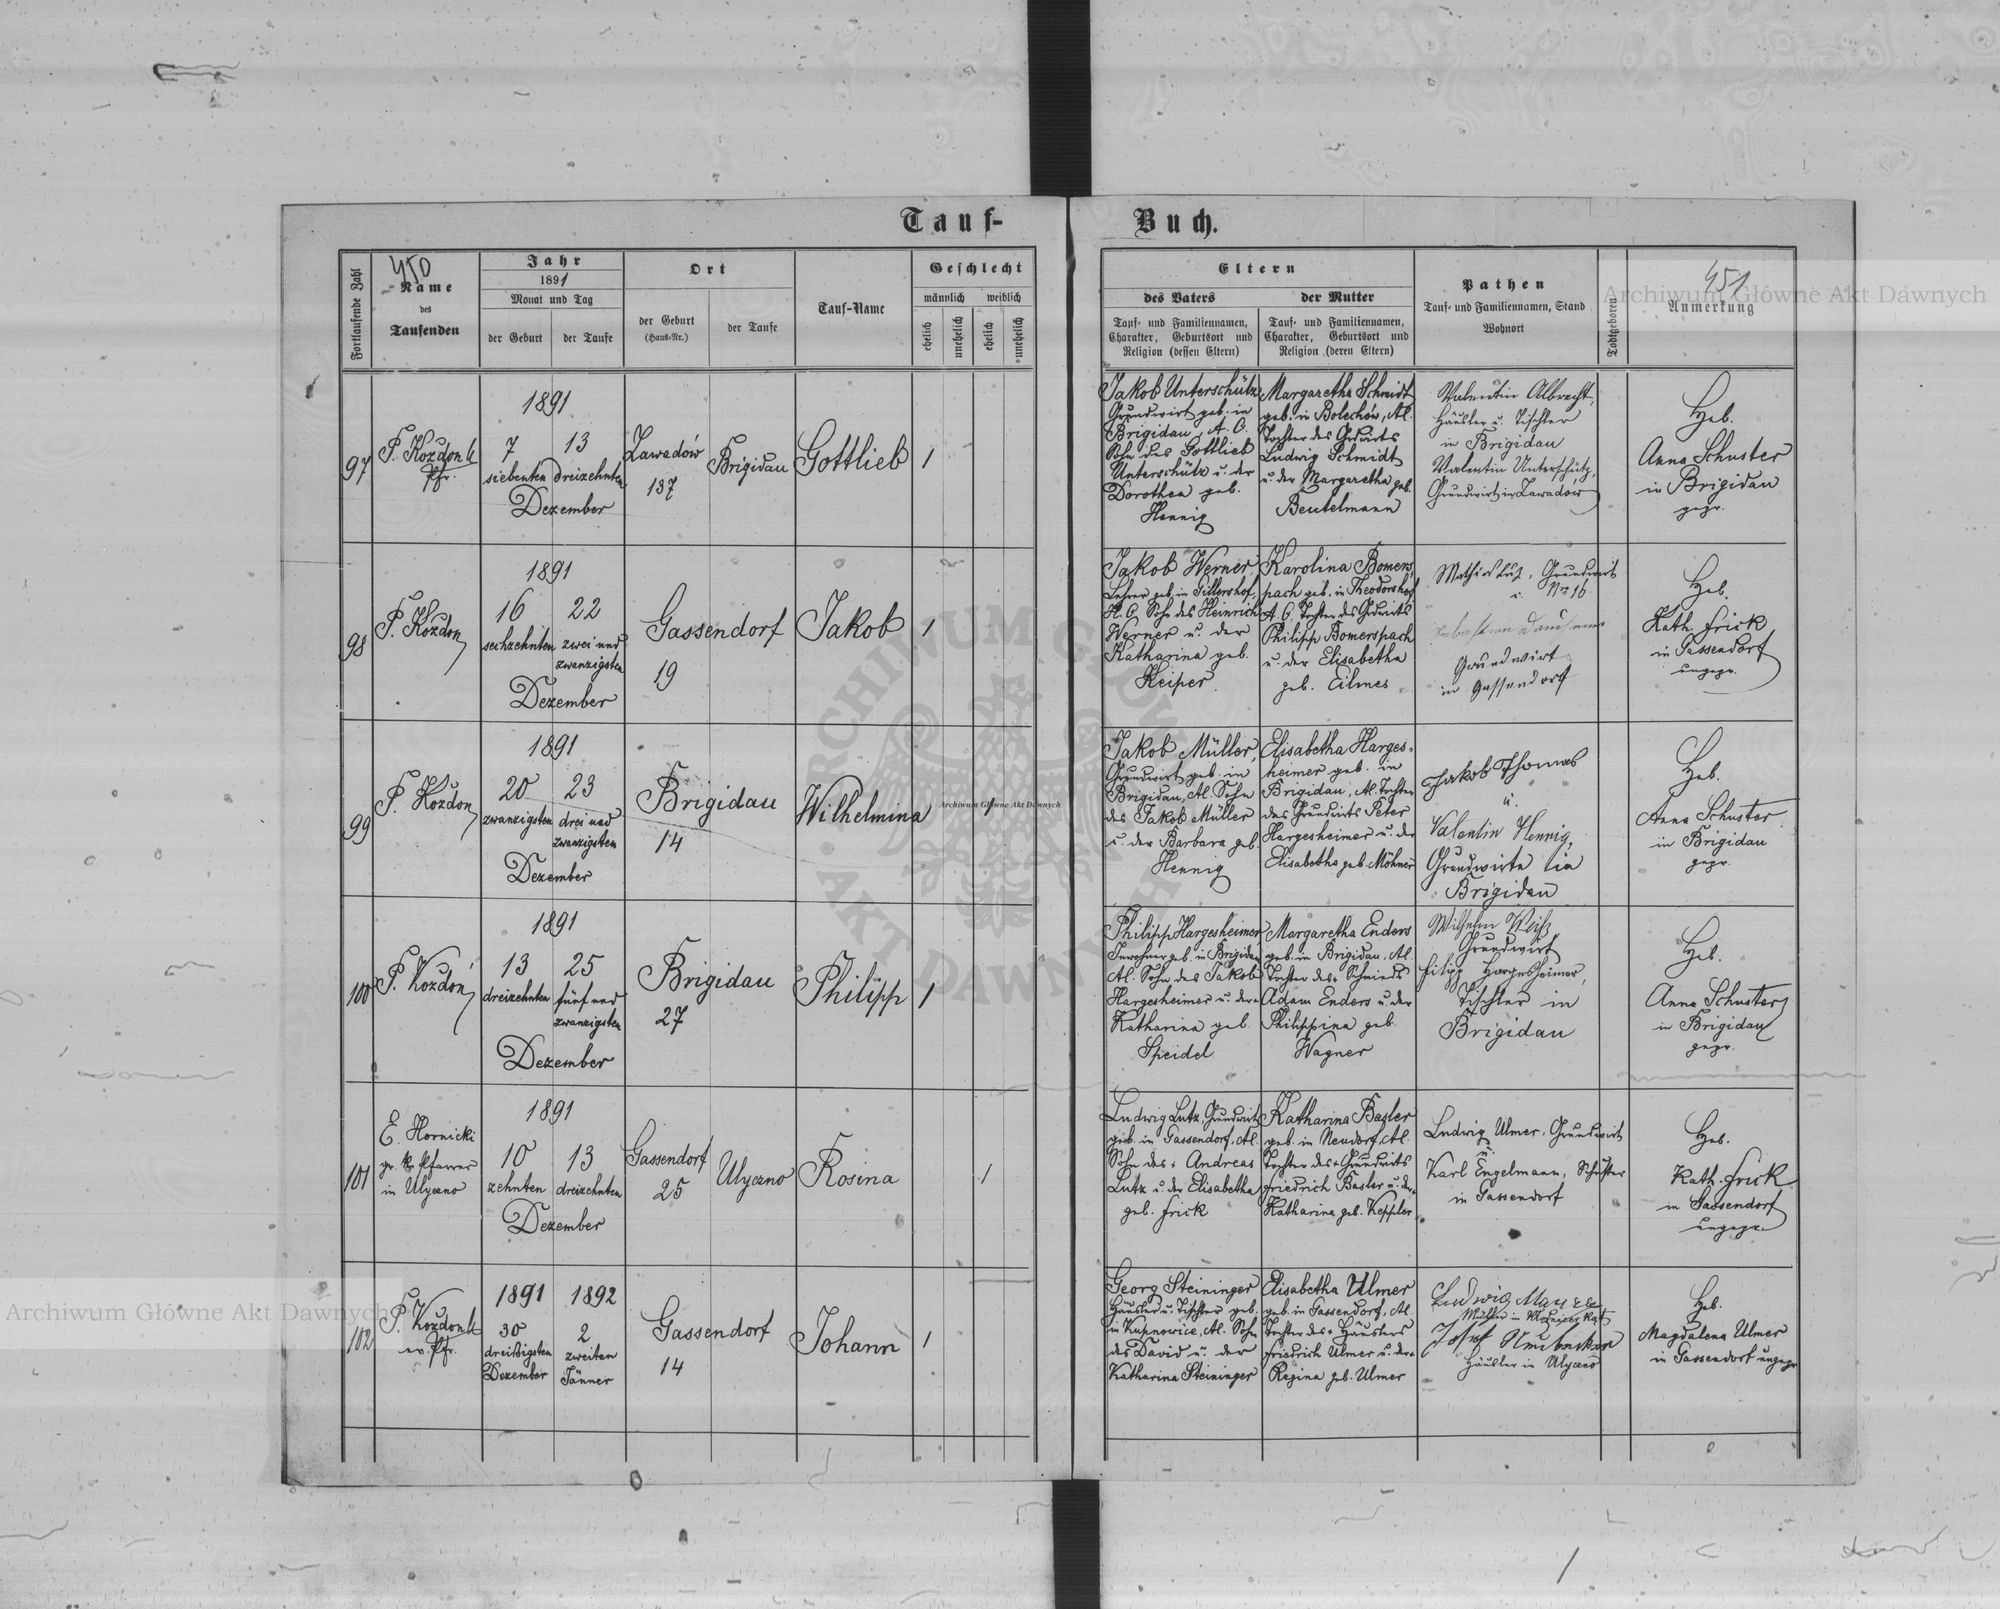 Tauf-
Buch.
450
451
Fortlaufende Zahl
Name
des
Taufenden
Jahr
1891
Monat und Tag
der Geburt
der Taufe
Ort
der Geburt
(Haus-Nr.)
der Taufe
Tauf-Name
Geschlecht
männlich
weiblich
ehelich
unehelich
ehelich
unehelich
Eltern
des Vaters
Tauf- und Familiennamen,
Charakter, Geburtsort und
Religion (dessen Eltern)
der Mutter
Tauf- und Familiennamen,
Charakter, Geburtsort und
Religion (deren Eltern)
Pathen
Tauf- und Familiennamen, Stand
Wohnort
Todtgeboren
Anmerkung
97
P. Kozdon
Pfr.
1891
7
siebenten
13
dreizehnten
Dezember
Zawadów
137
Brigidau
Gottlieb
1
Jakob Unterschütz
Grundwirt geb. in
Brigidau, A. C.
Sohn des Gottlieb
Unterschütz u. der
Dorothea geb.
Hennig
Margaretha Schmidt
geb. in Bolechów, Al.
Tochter des Grdwirts
Ludwig Schmidt
u. der Margaretha geb.
Beutelmann
Valentin Albrecht,
Häusler u. Tischler
in Brigidau
Valentin Unterschütz,
Grundwirt in Zawadów
Heb.
Anna Schuster
in Brigidau
gepr.
98
P. Kozdon
1891
16
sechzehnten
22
zwei und
zwanzigsten
Dezember
Gassendorf
19
Jakob
1
Jakob Werner,
Lehrer geb. in Gillershof,
H. C. Sohn des Heinrich
Werner u. der
Katharina geb.
Keiper
Karolina Bomers-
pach geb. in Theodorshof
A. C. Tochter des Grdwirts
Philipp Bomerspach
u. der Elisabetha
geb. Eilmes
Mathias Lutz, Grundwirt
u. No 16
Grundwirt
in Gassendorf
Heb.
Kath. Frick
in Gassendorf
ungepr.
99
P. Kozdon
1891
20
zwanzigsten
23
drei und
zwanzigsten
Dezember
Brigidau
14
Wilhelmina
1
Jakob Müller,
Grundwirt geb. in
Brigidau, Al. Sohn
des Jakob Müller
u. der Barbara geb.
Hennig
Elisabetha Harges-
heimer geb. in
Brigidau, Al. Tochter
des Grundwirts Peter
Hargesheimer u. der
Elisabetha geb. Möhner
Jakob Thomas
u.
Valentin Hennig,
Grundwirte in
Brigidau
Heb.
Anna Schuster
in Brigidau
gepr.
100
P. Kozdon
1891
13
dreizehnten
25
fünf und
zwanzigsten
Dezember
Brigidau
27
Philipp
1
Philipp Hargesheimer
Inwohner geb. in Brigidau
Al. Sohn des Jakob
Hargesheimer u. der
Katharina geb.
Speidel
Margaretha Enders
geb. in Brigidau, Al.
Tochter des Schmieds
Adam Enders u. der
Philippina geb.
Wagner
Wilhelm Weiß
Grundwirt
Filipp Hargesheimer,
Tischler in
Brigidau
Heb.
Anna Schuster
in Brigidau
gepr.
101
E. Hornicki
gr. k. Pfarrer
in Ulyczno
1891
10
zehnten
13
dreizehnten
Dezember
Gassendorf
25
Ulyczno
Rosina
1
Ludwig Lutz, Grundwirt
geb. in Gassendorf, Al.
Sohn des + Andreas
Lutz u. der Elisabetha
geb. Frick
Katharina Basler
geb. in Neudorf, Al.
Tochter des + Grundwirts
Friedrich Basler u. der
Katharina geb. Keppler
Ludwig Ulmer, Grundwirt
u.
Karl Engelmann, Schuster
in Gassendorf
Heb.
Kath. Frick
in Gassendorf
ungepr.
102
P. Kozdon
ev. Pfr.
1891
30
dreißigsten
Dezember
1892
2
zweiten
Jänner
Gassendorf
14
Johann
1
Georg Steininger
Häusler u. Tischler geb.
in Kupnowice, Al. Sohn
des David u. der
Katharina Steininger
Elisabetha Ulmer
geb. in Gassendorf, Al.
Tochter des + Häuslers
Friedrich Ulmer u. der
Regina geb. Ulmer
Ludwig Maurer
Müller in
Josef
Häusler in Ulyczno
Heb.
Magdalena Ulmer
in Gassendorf ungepr
Archiwum Główne Akt Dawnych
Archiwum Główne Akt Dawnych
Archiwum Główne Akt Dawnych
ARCHIWUM GŁÓWNE
AKT DAWNYCH